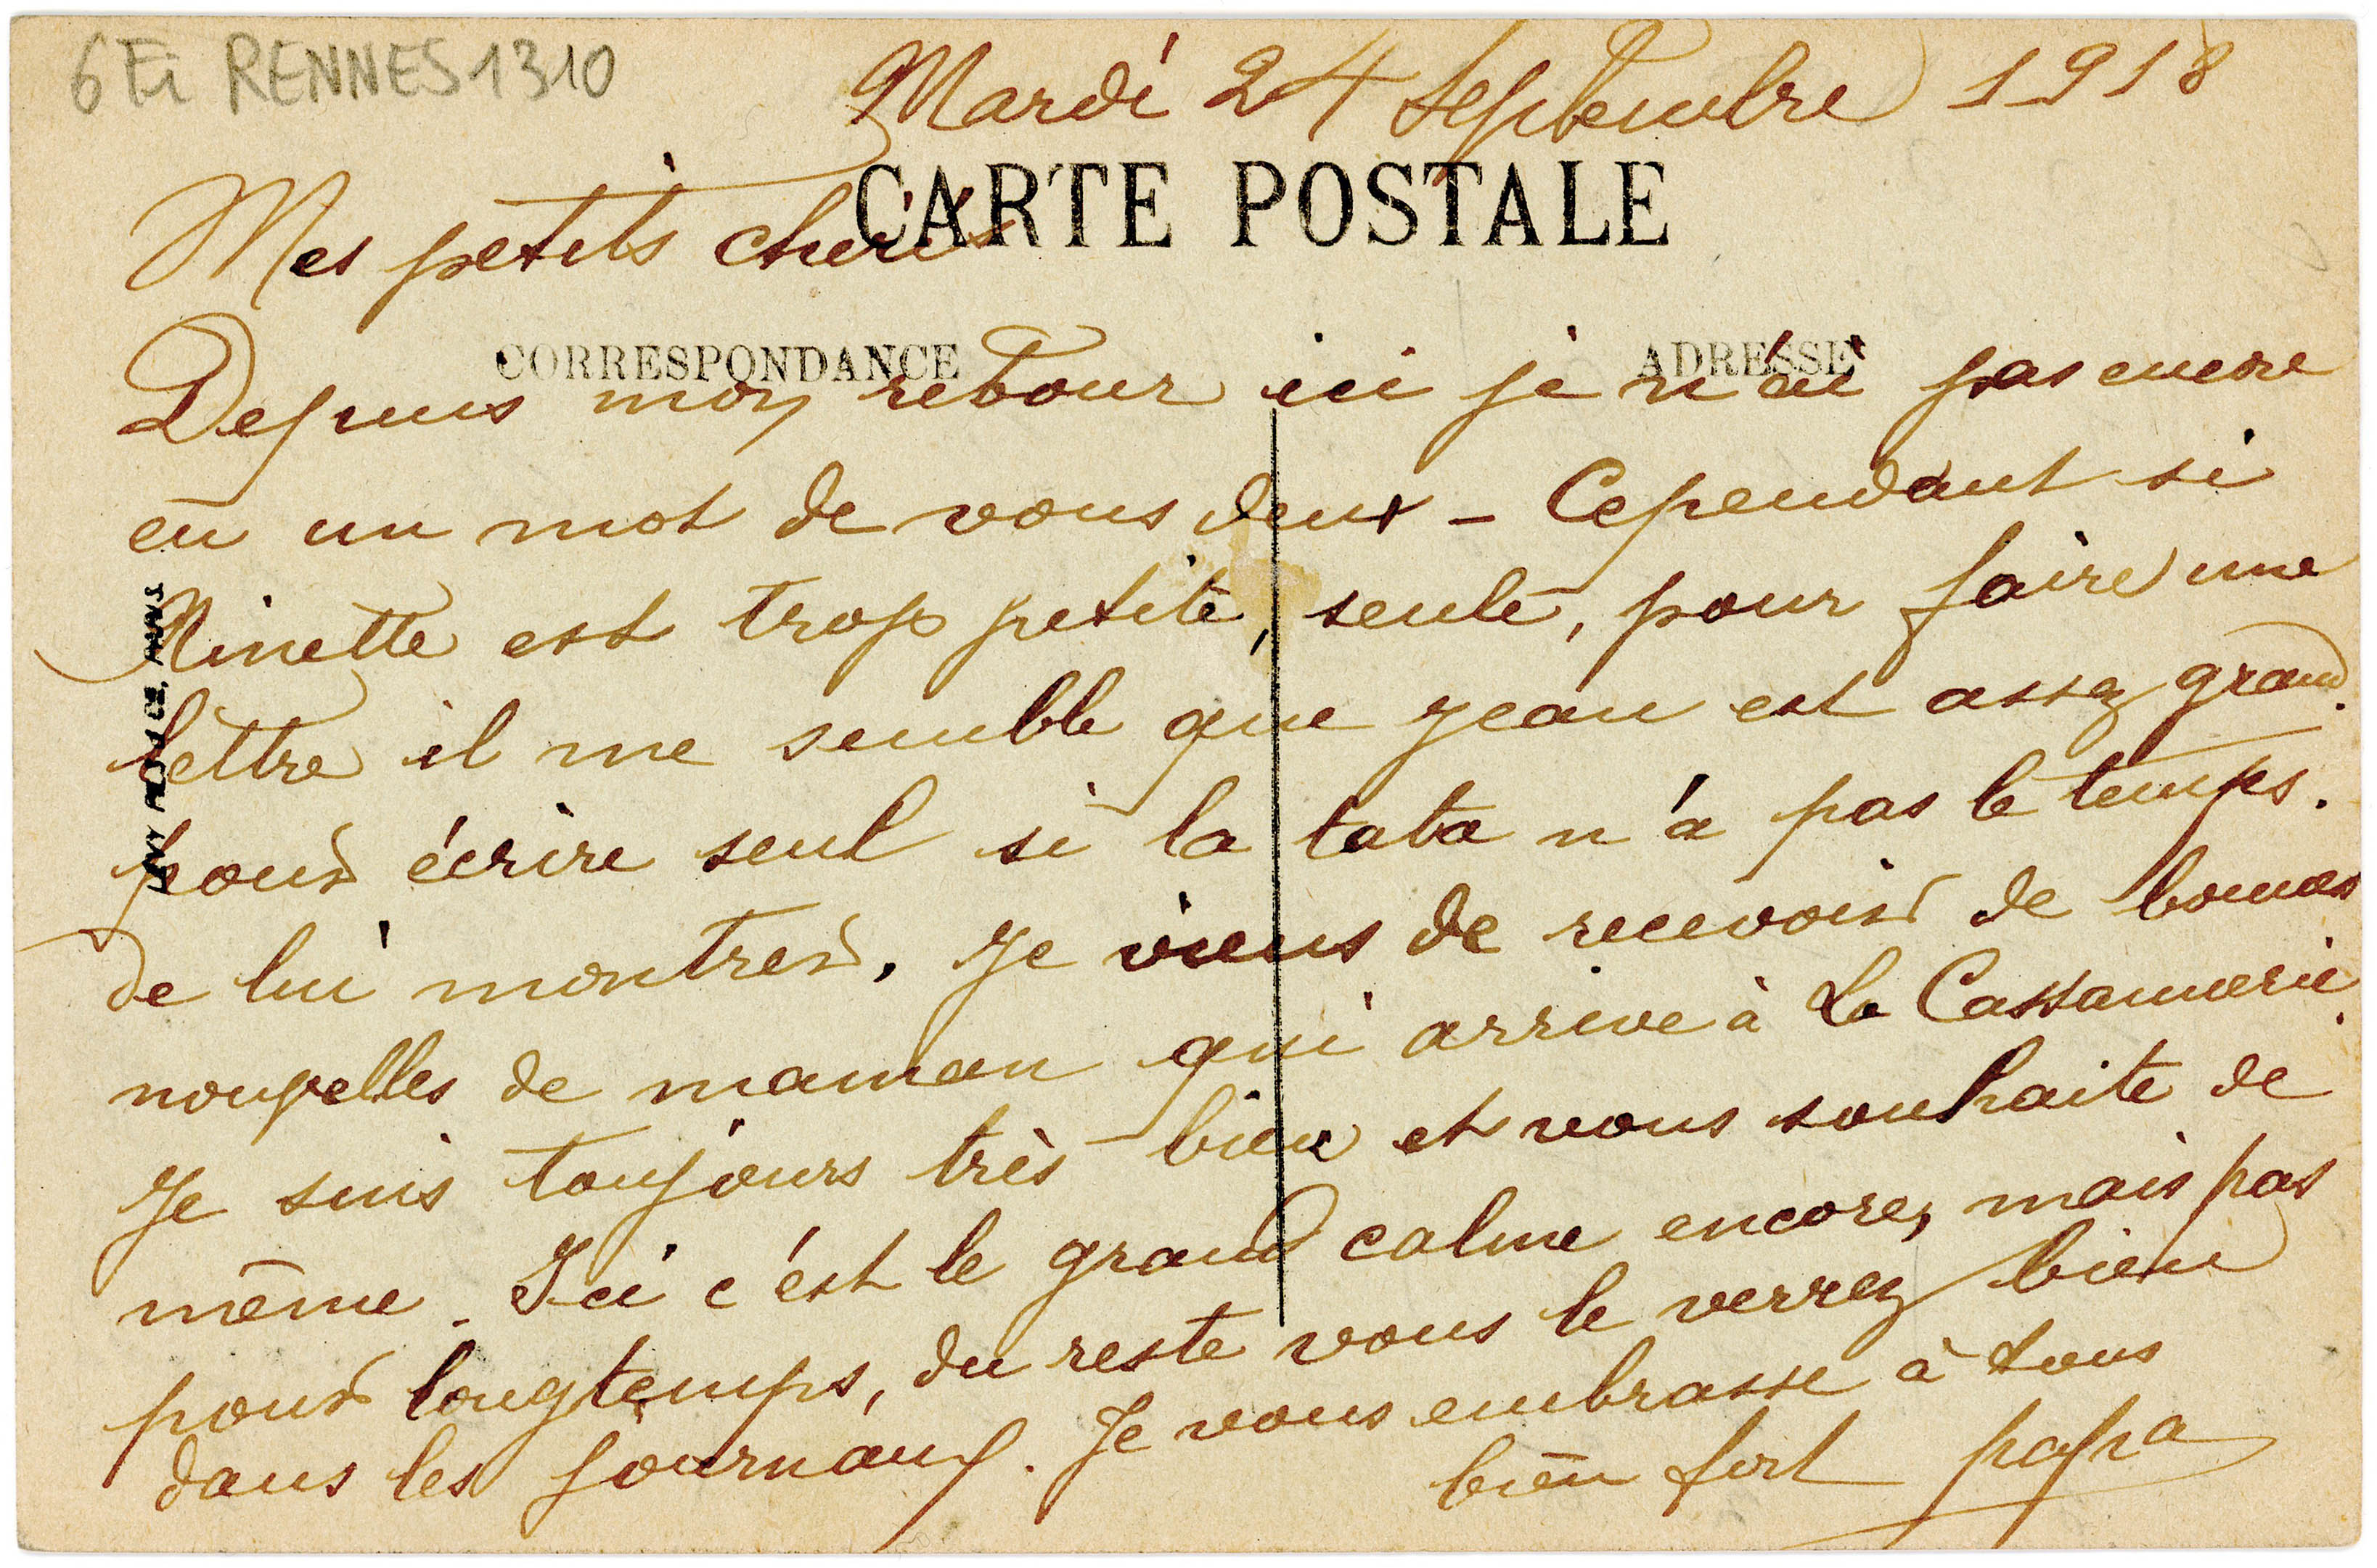 6 Fi RENNES 1310
Mardi 24 Septembre 1918
CARTE POSTALE
Mes petits cheris
CORRESPONDANCE
ADRESSE
Depuis mon retour ici je n'ai pas encore
eu un mot de vous deux – Cependant si
Ninette est trop petite, seule, pour faire une
lettre il me semble que Jean est assez grand
pour écrire seul si la tata n'a pas le temps.
de lui montrer. Je viens de recevoir de bonnes
nouvelles de maman qui arrive à La
Je suis toujours très bien et vous souhaite de
même. Ici c'est le grand calme encore, mais pas
pour longtemps, du reste vous le verrez bien
dans les journaux. Je vous embrasse à tous
bien fort papa